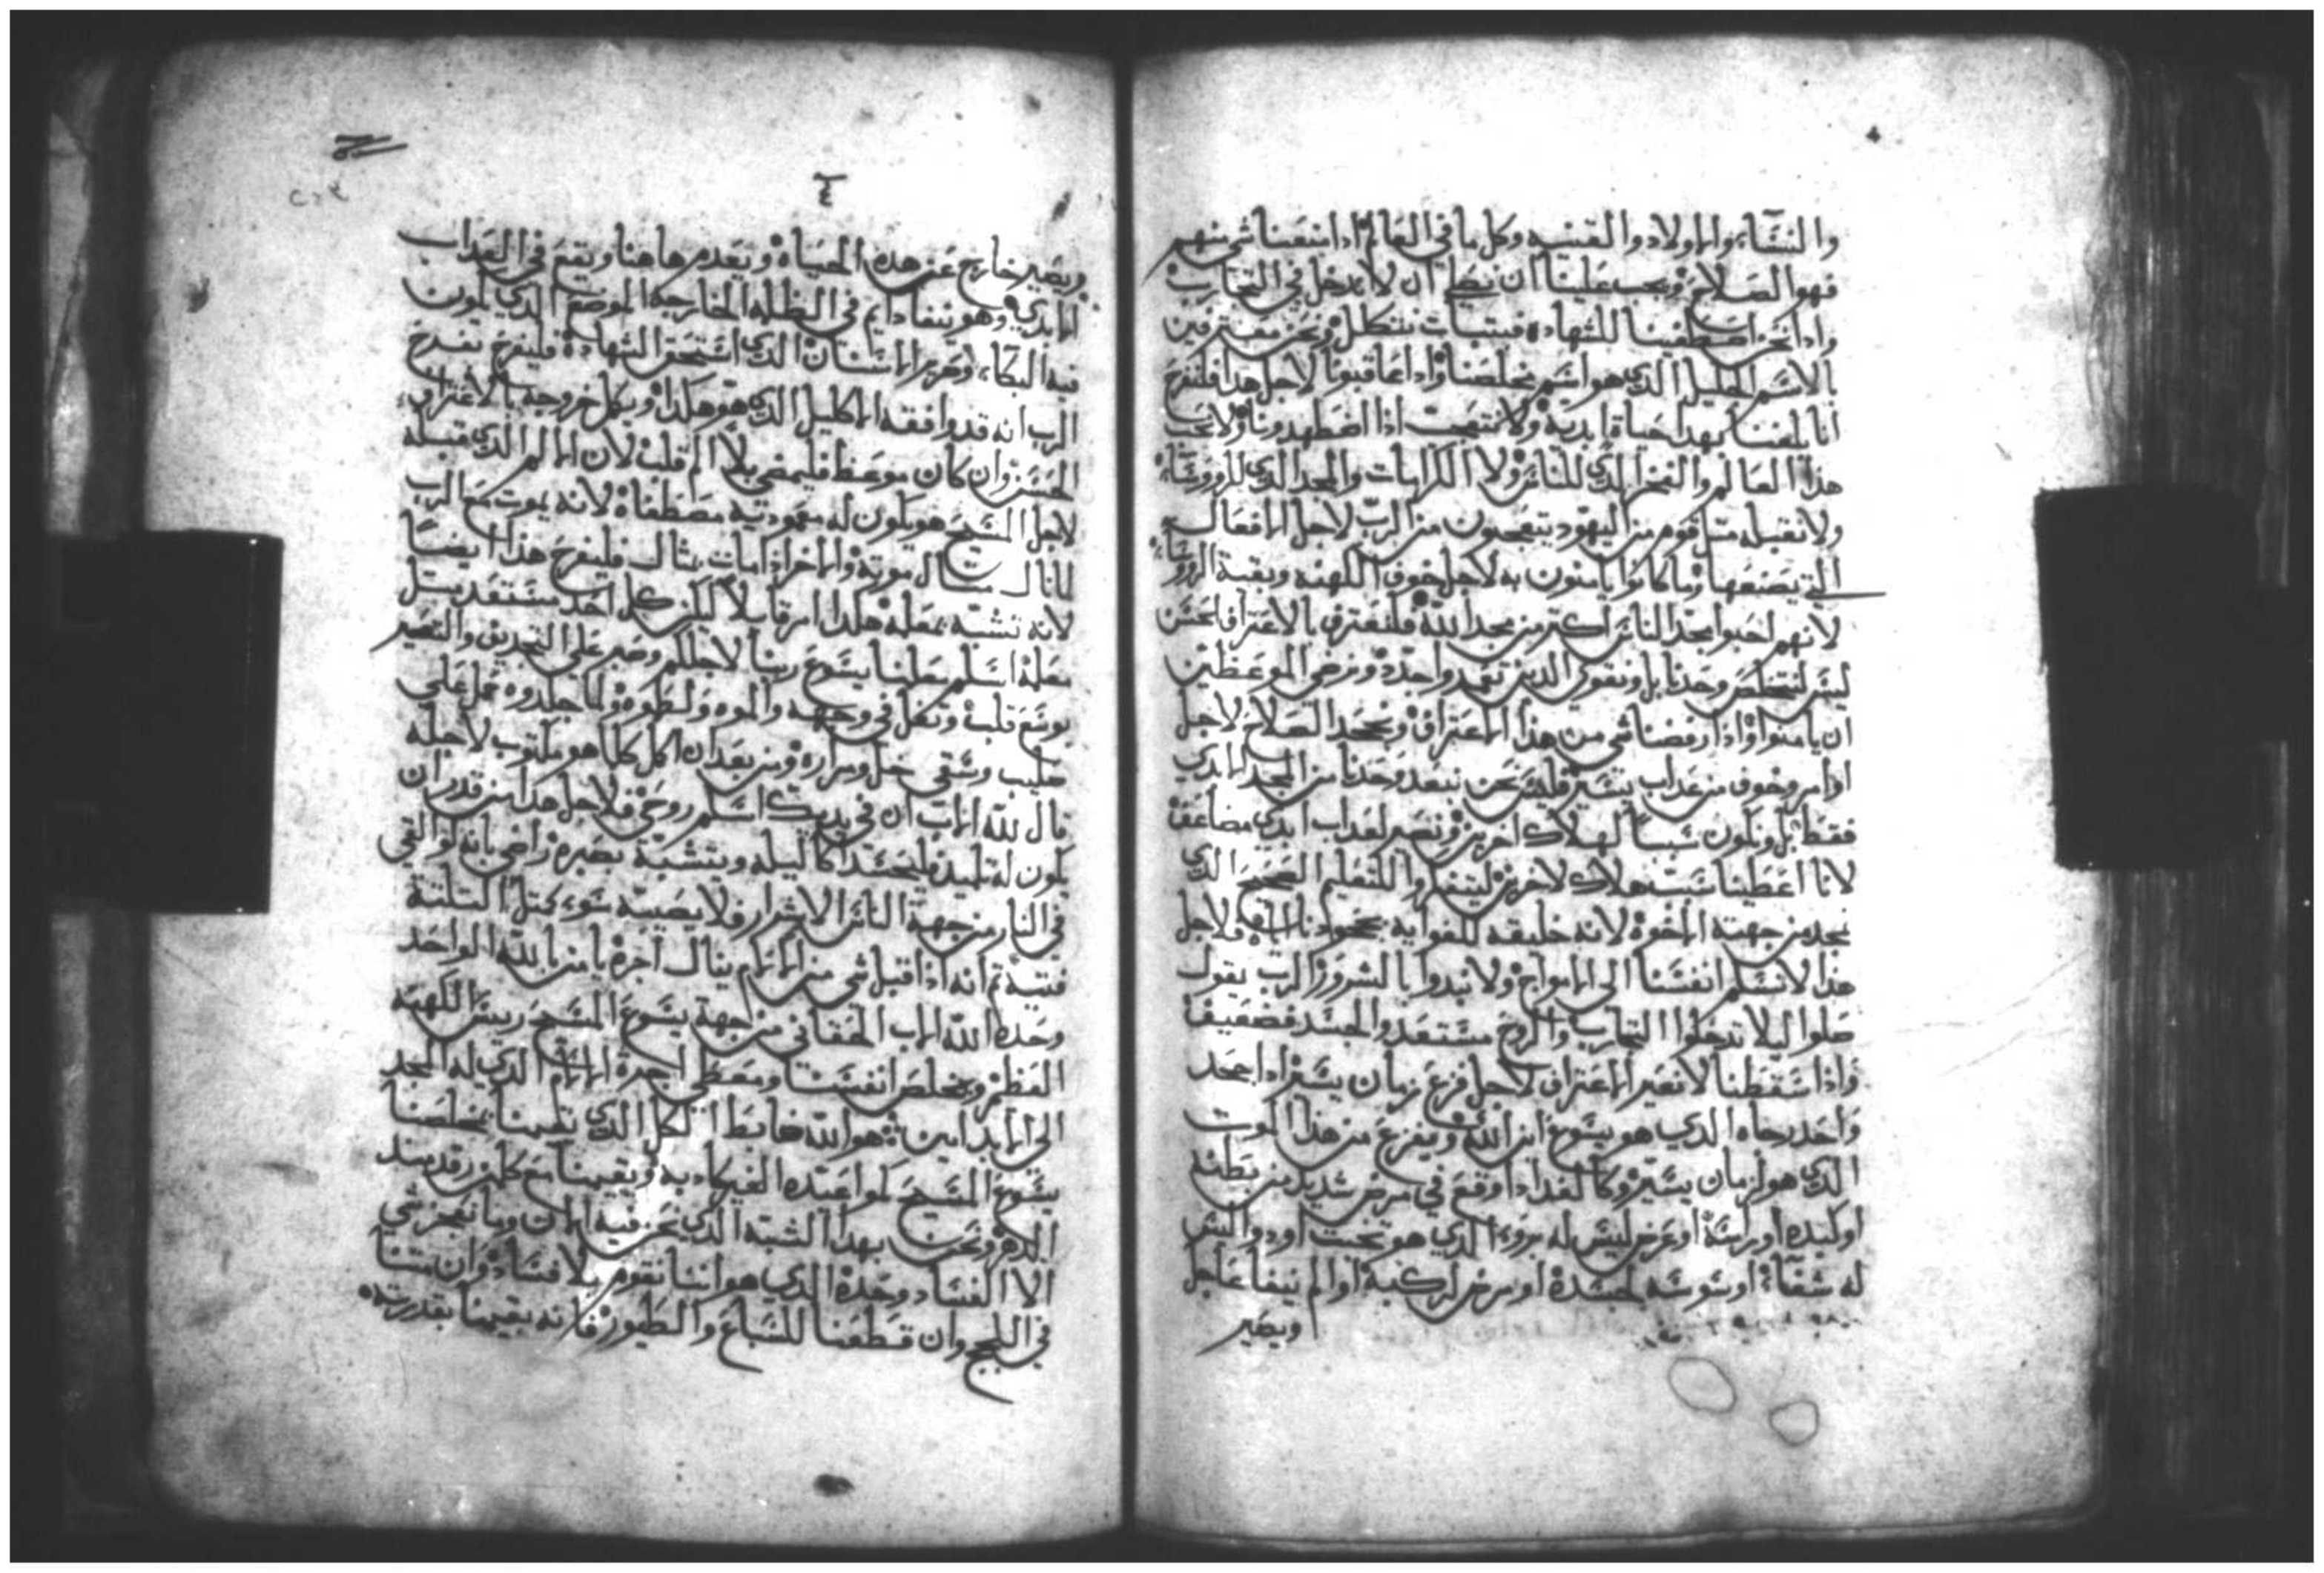 والنسا والاولاد والقنيه وكل ما في العالم اذا منعنا شي منهم
فهو الصلاح ويجب علينا ان نصلي ان لا ندخل في التجارب
واذا نحن اصطفينا للشهاده فبتبات نتكلم ونحن معترفين
بالاسم الجليل الذي هو اسم مخلصنا واذا عاقبونا لاجل هذا فلنفرح
انا يلغنا بهدا حياة ابدية ولا نتعجب اذا اضطهدونا ولا نحب
هذا العالم والفخر الذي للناس ولا الكرامات والمجد الذي للروسا
ولا نقبله متل قوم من اليهود يتعجبون من الرب لاجل الافعال
التي يصنعها وما كانوا يامنون به لاجل خوف الكهنه وبقية الروسا
لانهم احبوا مجد الناس اكتر من مجد الله فلنعترف بالاعتراف الحسن
ليس لنتخلص وحدنا بل ونقوي الدين تعمدوا جدد ونرضي الموعظين
ان يامنوا واذا رفضنا شي من هذا الاعتراف ونجحد الصلاح لاجل
او امر وخوف من عداب يسير فليس نحن نبعد وحدنا من المجد الابدي
فقط بل ونكون سبباً لهلاك اخرين ونصير لعداب ابدي مضاعف
لانا اعطينا سبب هلاك لاخرين ليتفكروا للتعليم الصحيح الذي
نجد من جهته الاخوة لانه خليقه للغوايه بجحودنا فلاجل
هذا لا نسلم انفسنا الى الامواج ولا نبدوا بالشرور الرب يقول
صلوا ليلا تدخلوا التجارب والروح مستعد والجسد فضعيف
واذا سقطنا لا نغير الاعتراف لاجل فزع زمان يسير اذا جحد
واحد رجاه الذي هو يسوع ابن الله ويفزع من هذا الموت
الذي هو لزمان يسير وكالغد اذا وقع في مرض شديد من بطنه
او كبده او راسه او عرض ليس له برو الذي هو تحت او دوا ليس
له شفا او سوسه لجسده او مرض لركبه او الم نيفا عاجل
ويصير
٤
ويصير خارج عن هذه الحياة ويعدم هاهنا ويقع في العداب
الابدي وهو ينفا دايم في الظلمه الخارجه الموضع الذي يكون
فيه البكا وصرير الاسنان الذي استحق الشهادة فليفرح تفرح
الرب انه قد وافقه الاكليل الذي هو هكذا ويكمل خروجه بالاعتراف
الحسن وان كان موعظ فليمضي بلا الم قلب لان الالم الذي قبله
لاجل المسيح هو يكون له معموديه مصطفاة لانه يموت مع الرب
لانال متال موته والاخر اذا مات بتال فليفرح هذا ايضا
لانه تشبه بمعلمه هكذا امر قايلاً ليكن كل احد مستعد متل
معلمه اسلم معلمنا يسوع ربنا لاجلكم وصبر على التجديف والتعيير
بوسع قلب وتفل في وجهه والموه ولطموه ولما جلدوه حمل على
صليب وسقي خل ومراره ومن بعد ان اكمل كلما هو مكتوب لاجله
قال لله الاب ان في يديك اسلم روحي فلاجل هذا من قدر ان
يكون له تلميد فليحسد اكاليله ويتشبه بصبره راضي بانه لو القي
في النار من جهة الناس الاشرار فلا يصيبه سو كمتل التلتة
فتية تم انه اذا قبل شي من الالام ينال اجره يامن بالله الواحد
وحده الله الاب الحقاني من جهة يسوع المسيح ريس الكهنه
العظم ومخلص انفسنا ومعطي اجرة الالام الذي له المجد
الى الابد امين هو الله ضابط الكل الذي يقيمنا بمخلصنا
يسوع المسيح كمواعيده الغير كادبه ويقيمنا مع كل من رقد منذ
الدهر ونحن بهذا الشبه الذي نحن فيه الان وما نعجز شي
الا الفساد وحدة الذي هو اننا نقوم بلا فساد وان متنا
في اللجج وان قطعنا للسباع والطيور فانه يقيمنا بقدرته